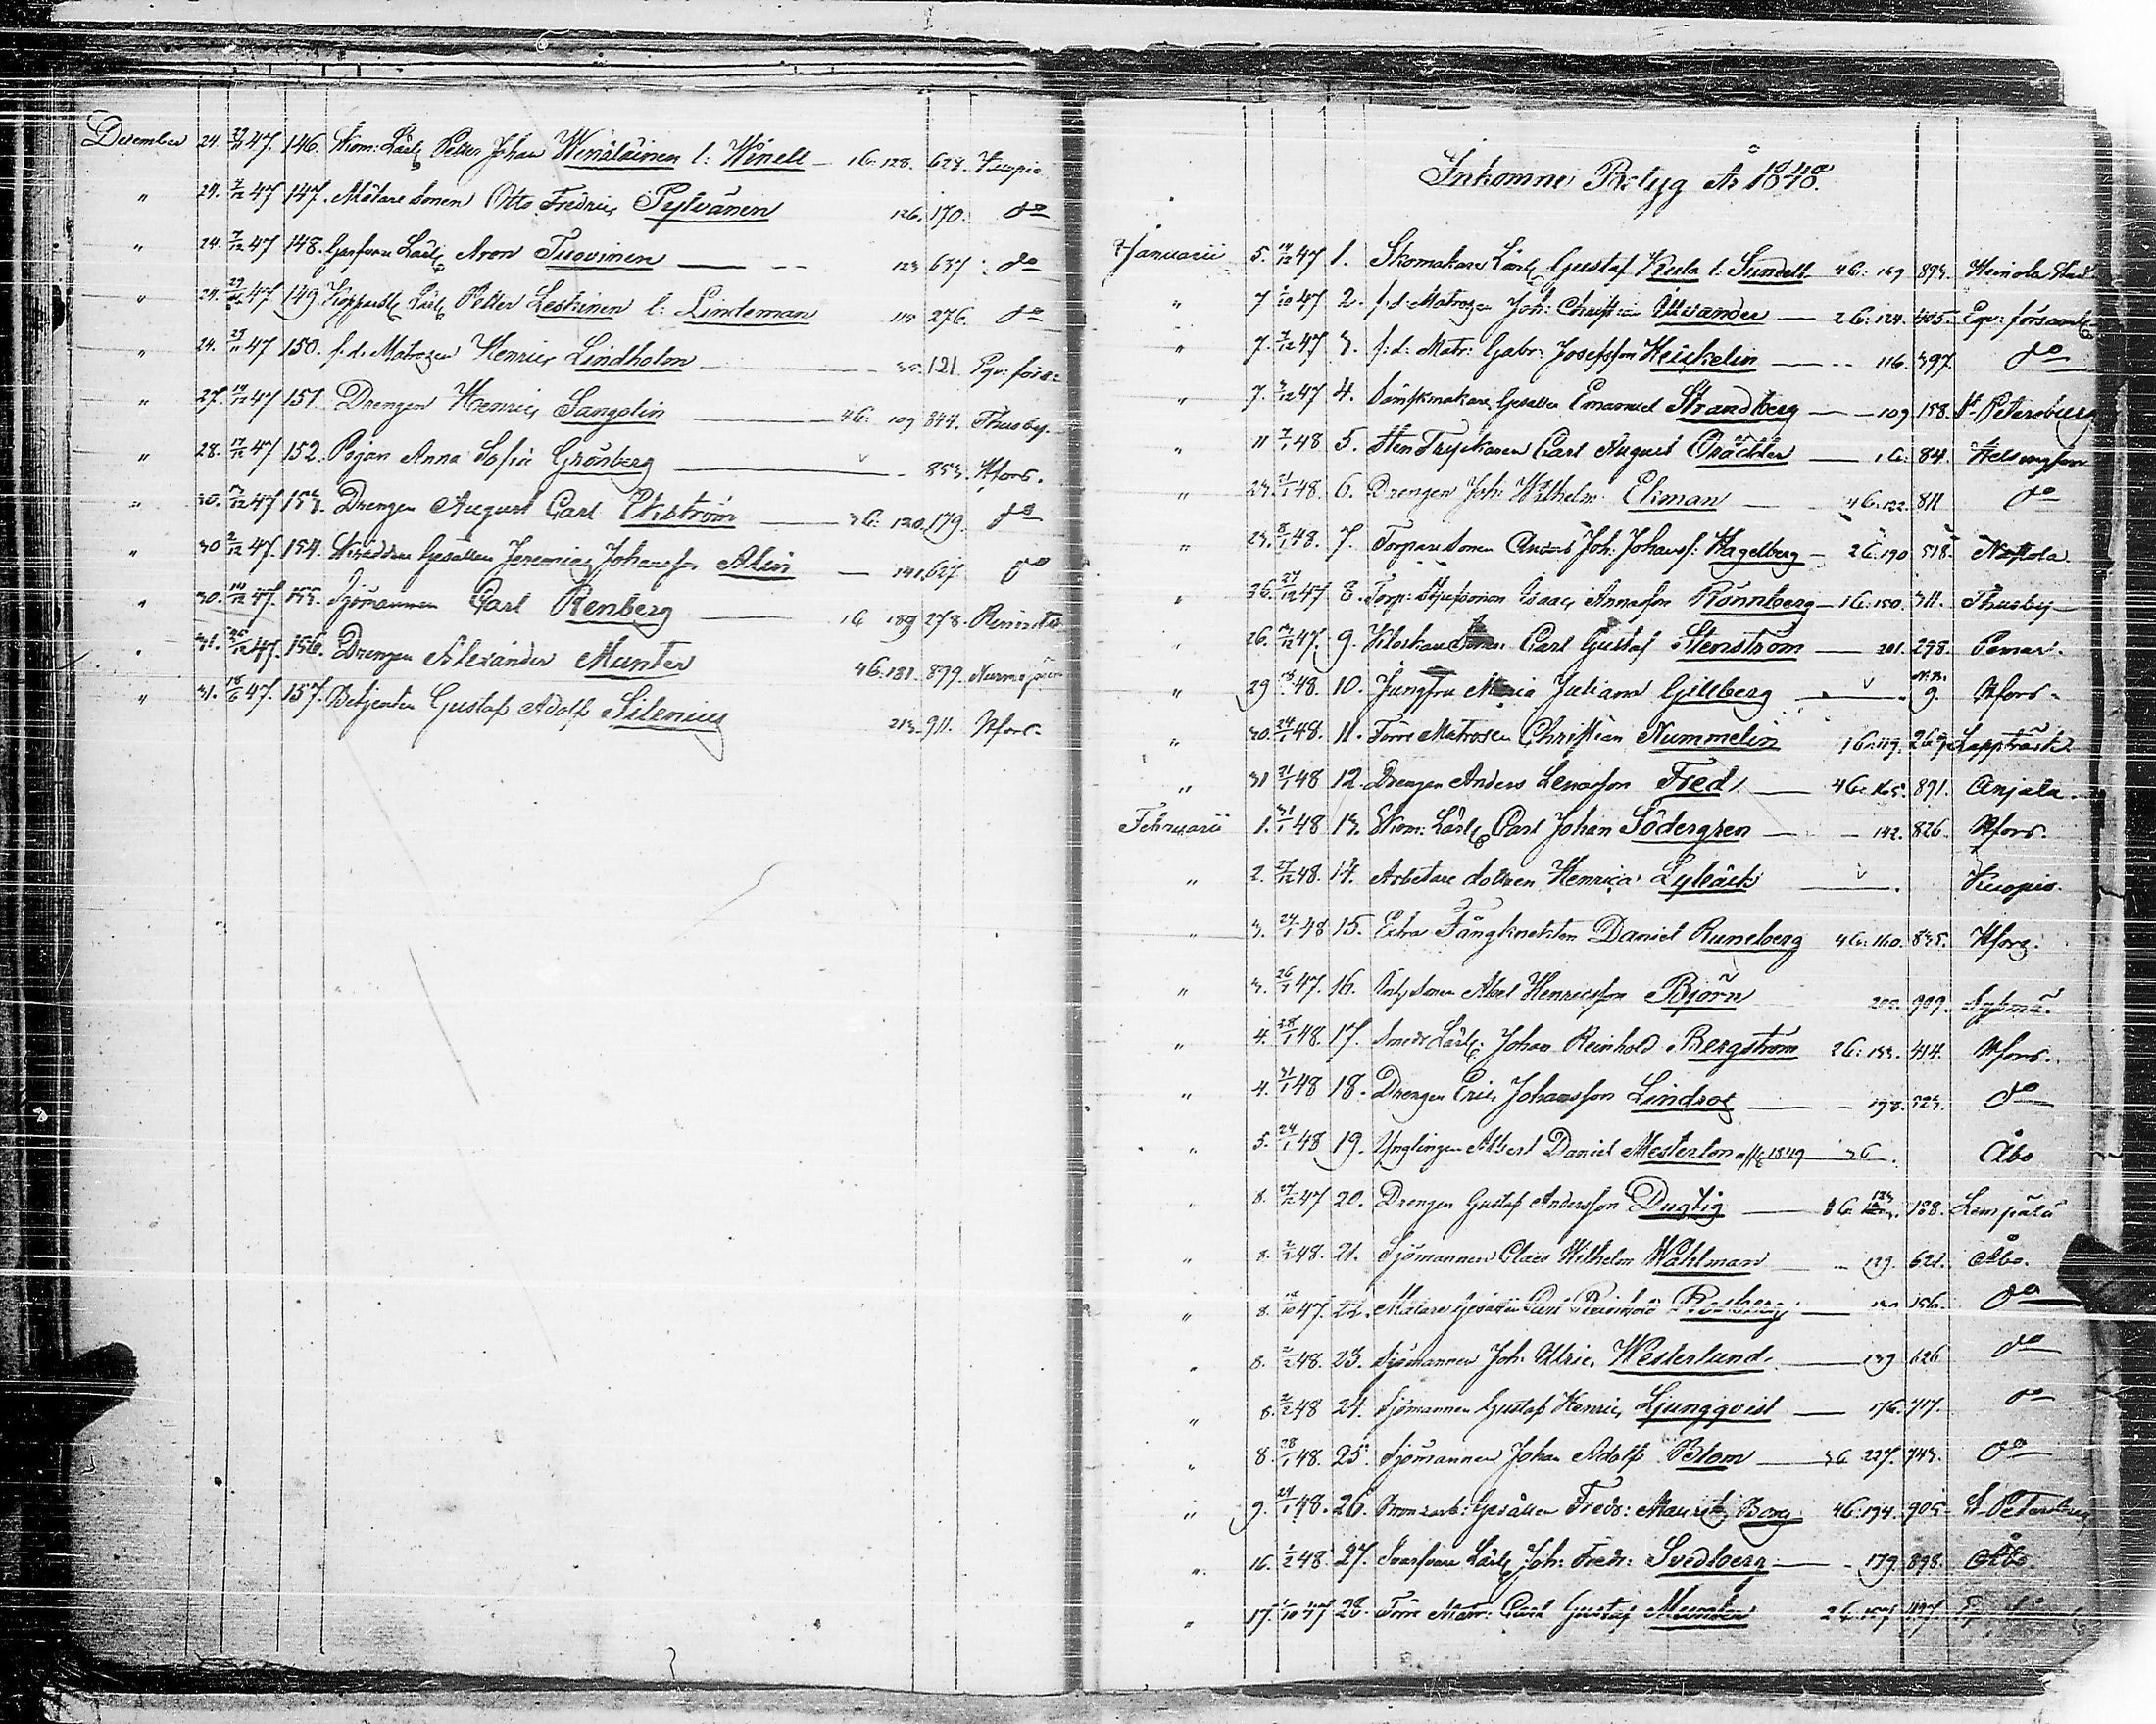 December 24. 47. 146. Skom: Lärl Petter Johan Wenäläinen l: Winell 16: 128. 628. Kuopio
" 24. 47 147. Målare sonen Otto Fredric Pylvänen 126. 170. do
" 24. 47 148. Garfvare Lärl Aron Tuovinen 123 637 do
" 24. 47 149. Kopparsl Lärl Petter Leskinen l: Lindeman 115 276. do
" 24. 47 150. f. d. Matrozen Henric Lindholm 35. 121. Eqv: förs:
" 27. 47 151. Drengen Henric Sangelin 46: 109 844. Thusby.
" 28. 47 152. Pigan Anna Sofia Grönberg v 853. Hfors.
" 30. 47 153. Drengen August Carl Ekström 36: 120. 179. do
" 30 47. 154. Skräddare Gesällen Jeremias Johansson Alin 141. 627 do
" 30. 47. 155. Sjömannen Carl Renberg 16 189 278. Rimito
" 31. 47. 156. Drengen Alexander Munter 46: 131. 899. Nurmijärvi
" 31. 47. 157. Betjenten Gustaf Adolf Silenius 213. 911. Hfors.
Inkomne Betyg År 1848.
Januarii 5. 47 1. Skomakare Lärl Gustaf Kula l: Sundell 46: 169 893. Heinola Stad
" 7 47 2. f. d. Matrozen Joh: Christian Uksander 26: 124. 405. Eqv: församl
" 7. 47 3. f: d: Matr: Gabr: Josefsson Heickelin 116. 397. do
" 7. 47 4. Gesällen Emanuel Strandberg 109 158. St Petersburg
" 11 48 5. Sten Tryckaren Carl August 16: 84. Helsingfors
" 23. 48. 6. Drengen Joh: Wilhelm Eliman 46: 122. 811 do
" 23. 48. 7. Torpare Sonen Anders Joh: Johanss: Hagelberg 26: 190 518. Nastola.
" 26. 47 8. Torp: Isaac Annasson Rönnberg 16: 150. 311. Thusby
" 26. 47. 9. Klockare Sonen Carl Gustaf Stenström 201. 298. Pemar.
" 29 48. 10. Jungfru Maria Juliana Gillberg v 9. Hfors.
" 30. 48. 11. Förre Matrosen Christian Nummelin 16: 119. 269. Lappträsk
" 31 48 12. Drengen Anders Lenasson Fred 46: 165. 891. Anjala.
Februarii 1. 48 13. Skom: Lärl Carl Johan Södergren 142. 826. Hfors.
" 2. 48. 14. Arbetare dottren Henrica Lybäck v Kuopio.
" 3. 48 15. Extra Fångknekten Daniel Runeberg 46: 160. 835. Hfors.
" 3. 47. 16. sonen Abel Henricsson Björn 200. 909. Sysmä.
" 4. 48. 17. Smeds Lärl: Johan Reinhold Bergström 26: 133. 414. Hfors.
" 4. 48 18. Drengen Eric Johansson Lindros 198. 523. do
" 5. 48 19. Ynglingen Albert Daniel Mesterton aflg 1849 36 Åbo
" 8. 47 20. Drengen Gustaf Andersson Dugtig 36 123 158. Lempälä
" 8. 48. 21. Sjömannen Claes Wilhelm Wahlman 139. 621. Åbo.
" 8. 47. 22. Målare Gesällen Carl Reinhold 130 156. do
" 8. 48. 23. Sjömannen Joh: Ulric Westerlund. 139 626 do
" 8. 48 24. Sjömannen Gustaf Henric Ljungqvist 176. 717. do
" 8. 48. 25. Sjömannen Johan Adolf Blom 36 227. 743. do
" 9. 48. 26. Gesällen Fredr: Maurits Borg 46: 194. 905. St Petersburg
" 16. 48 27. Svarfvare Lärl Joh: Fredr: Svedberg 179. 898. Åbo.
" 17. 47 28. Förre Matr: Carl Gustaf